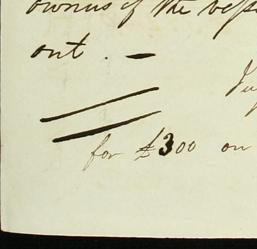 owners of the vess
out . —
for £300 on